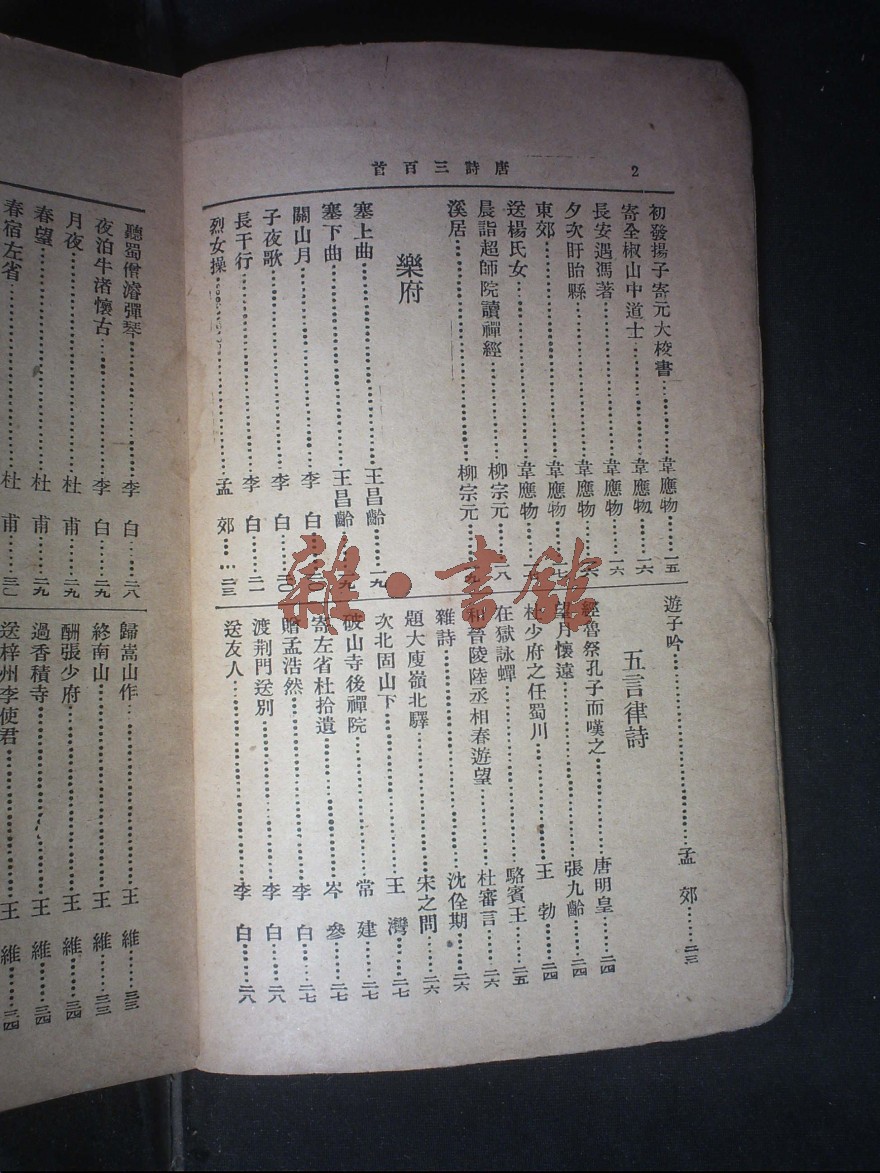 唐詩三百首
2
初發揚子寄元大校書……韋應物……一五
寄全椒山中道士……韋應物……一六
長安遇馮著……韋應物……一六
夕次盱眙縣……韋應物……一六
東郊……韋應物……一七
送楊氏女……韋應物
晨詣超師院讀禪經……柳宗元……一八
溪居……柳宗元……一九
樂府
塞上曲……王昌齡……一九
塞下曲……王昌齡……一九
關山月……李白……二〇
子夜歌……李白……二〇
長干行……李白……二一
烈女操……孟郊……二三
遊子吟……孟郊……二三
五言律詩
經魯祭孔子而嘆之……唐明皇……二四
望月懷遠……張九齡……二四
杜少府之任蜀川……王勃……二四
在獄詠蟬……駱賓王……二五
和晉陵陸丞相春遊望……杜審言……二六
雜詩……沈佺期……二六
題大庾嶺北驛……宋之問……二六
次北固山下……王灣……二七
破山寺後禪院……常建……二七
寄左省杜拾遺……岑參……二七
贈孟浩然……李白……二七
渡荆門送別……李白……二八
送友人……李白……二八
聽蜀僧濬彈琴……李白……二八
夜泊牛渚懷古……李白……二九
月夜……杜甫……二九
春望……杜甫……二九
春宿左省……杜甫……三〇
歸嵩山作……王維……三三
終南山……王維……三三
酬張少府……王維……三四
過香積寺……王維……三四
送梓州李使君……王維……三四
雜·書館